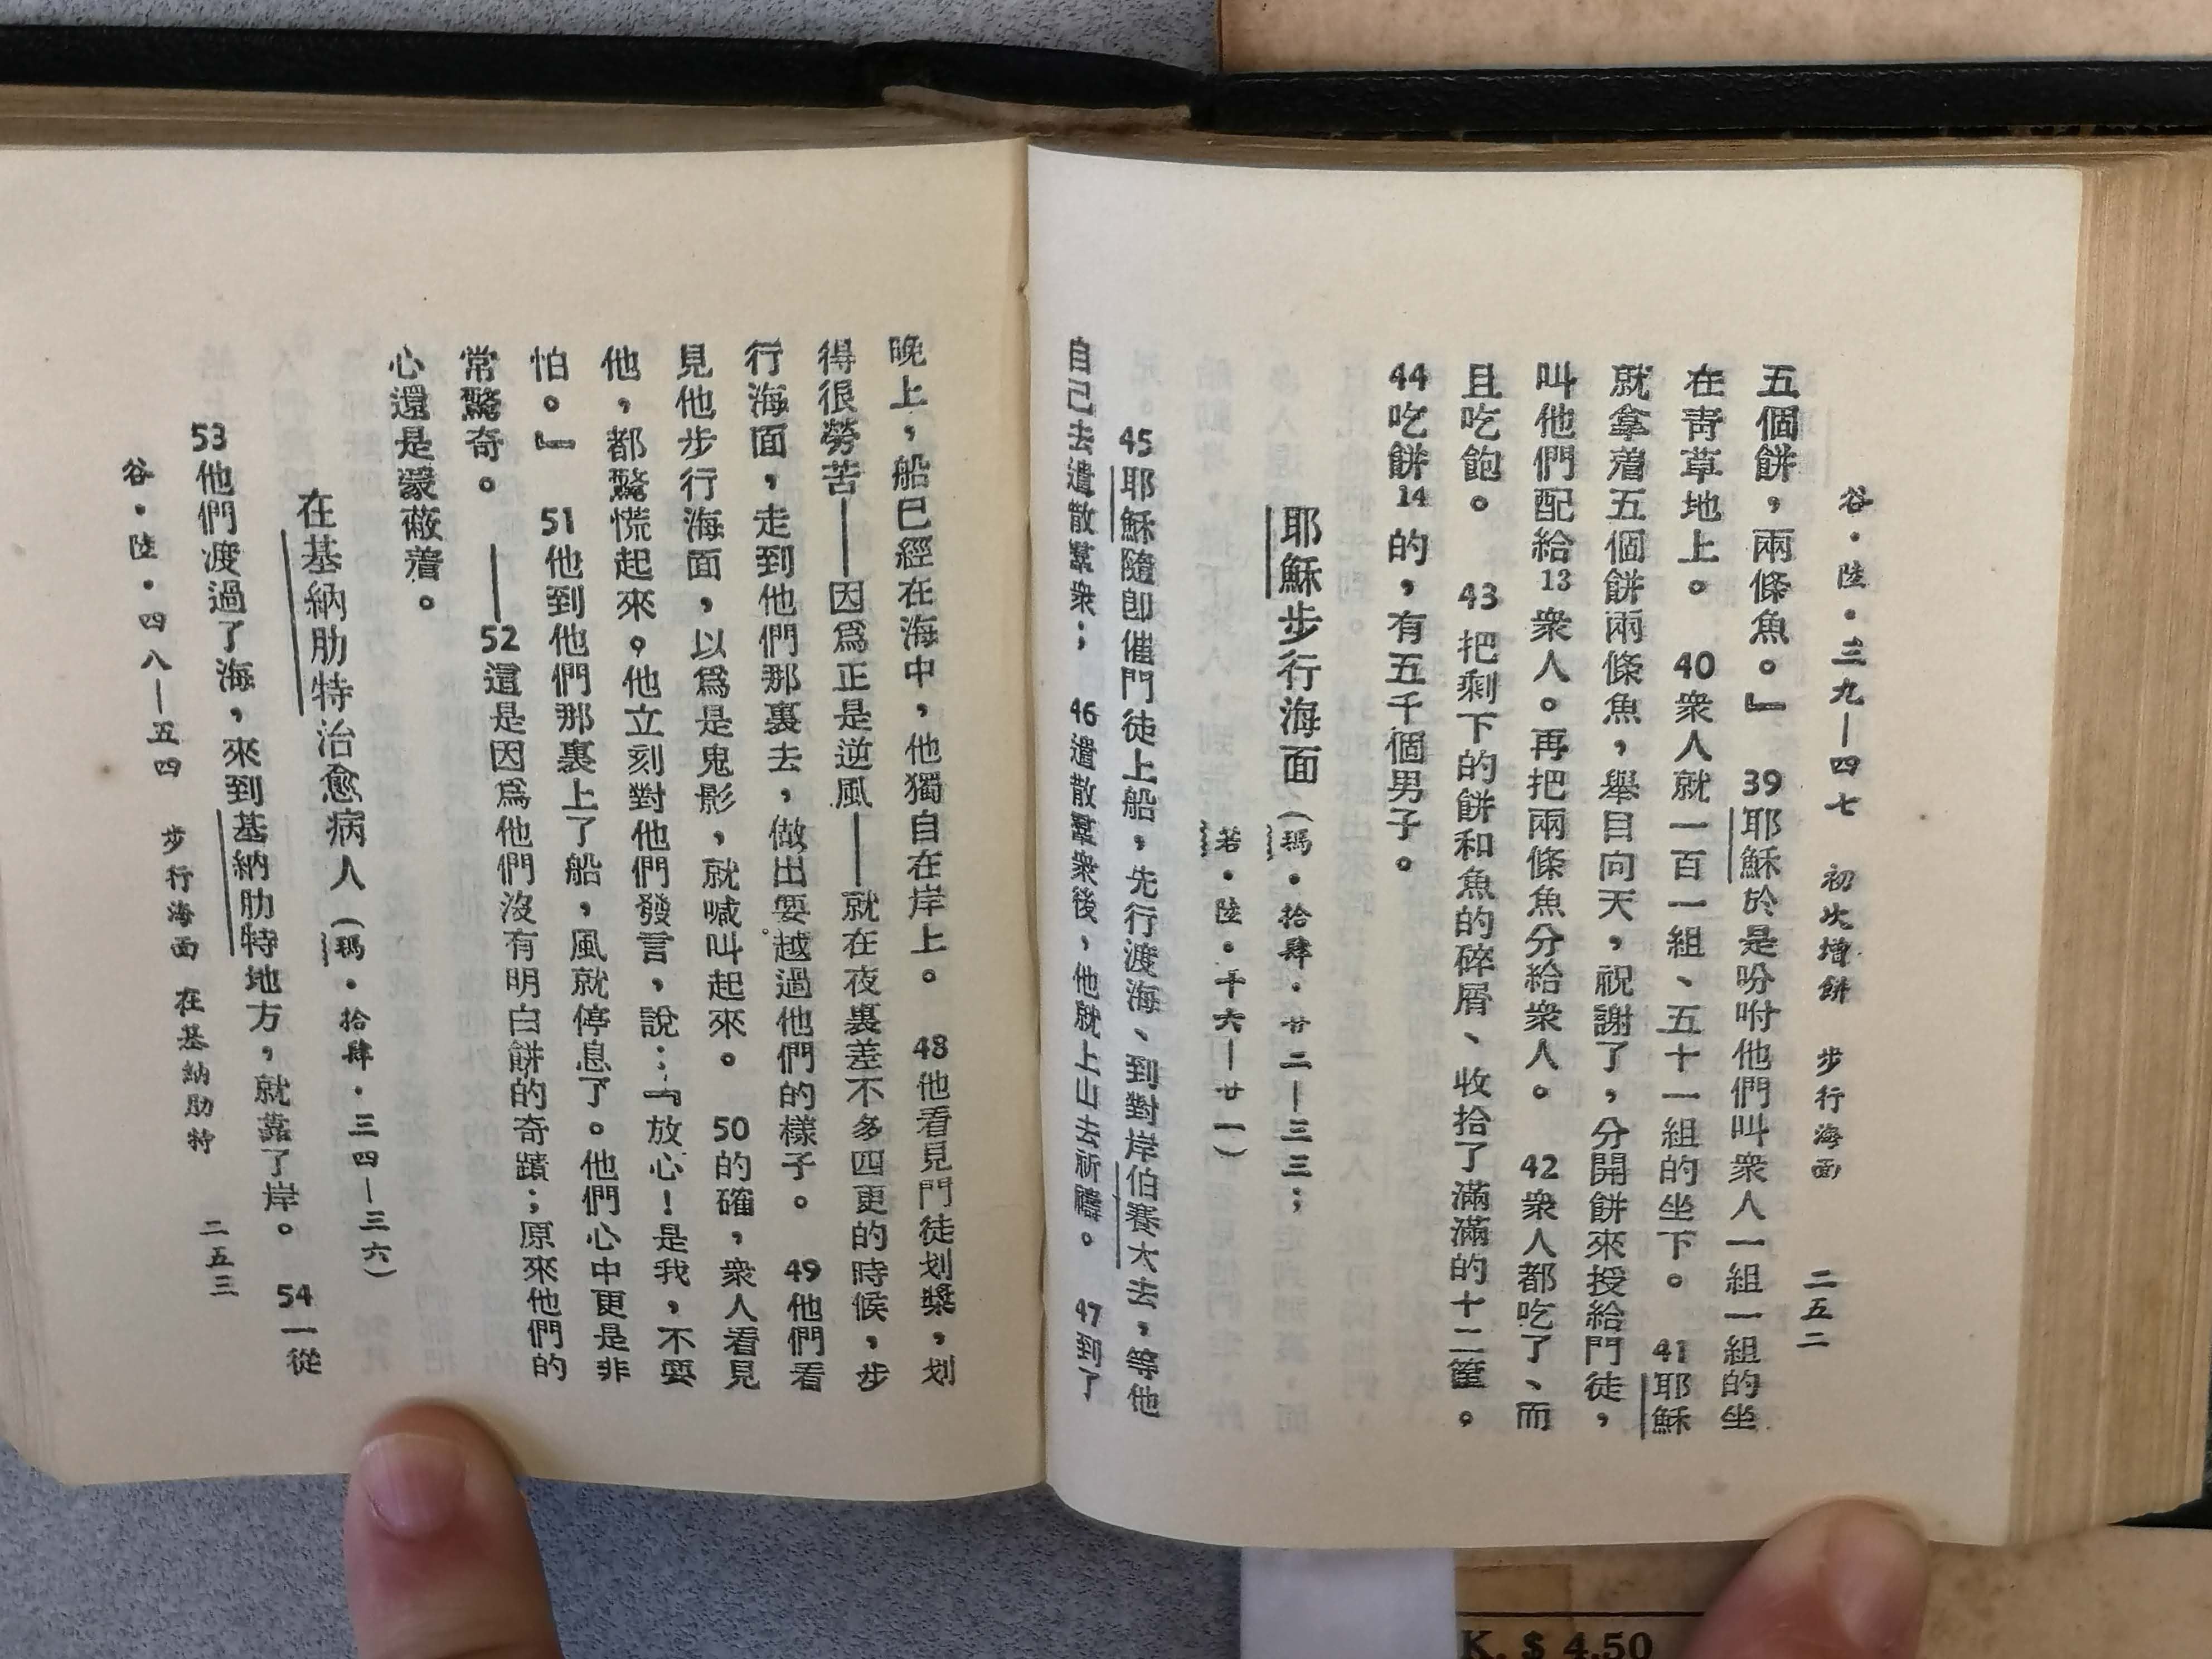 谷·陸·三九—四七 初次增餅 步行海面 二五二
五個餅，兩條魚。』 39耶穌於是吩咐他們叫衆人一組一組的坐
在靑草地上。 40衆人就一百一組、五十一組的坐下。 41耶穌
就拿着五個餅兩條魚，舉目向天，祝謝了，分開餅來授給門徒，
叫他們配給13衆人。再把兩條魚分給衆人。 42衆人都吃了、而
且吃飽。 43把剩下的餅和魚的碎屑、收拾了滿滿的十二筐。
44吃餅14的，有五千個男子。
耶穌步行海面（瑪·拾肆·廿二—三三；
若·陸·十六—廿一）
45耶穌隨卽催門徒上船，先行渡海、到對岸伯賽大去，等他
自己去遣散羣衆； 46遣散羣衆後，他就上山去祈禱。 47到了
晚上，船已經在海中，他獨自在岸上。 48他看見門徒划槳，划
得很勞苦——因爲正是逆風——就在夜裏差不多四更的時候，步
行海面，走到他們那裏去，做出要越過他們的樣子。 49他們看
見他步行海面，以爲是鬼影，就喊叫起來。 50的確，衆人看見
他，都驚慌起來。他立刻對他們發言，說：『放心！是我，不要
怕。』 51他到他們那裏上了船，風就停息了。他們心中更是非
常驚奇。——52這是因爲他們沒有明白餅的奇蹟；原來他們的
心還是蒙蔽着。
在基納肋特治愈病人（瑪·拾肆·三四—三六）
53他們渡過了海，來到基納肋特地方，就靠了岸。 54一從
谷·陸·四八—五四 步行海面 在基納肋特 二五三
K. $ 4.50